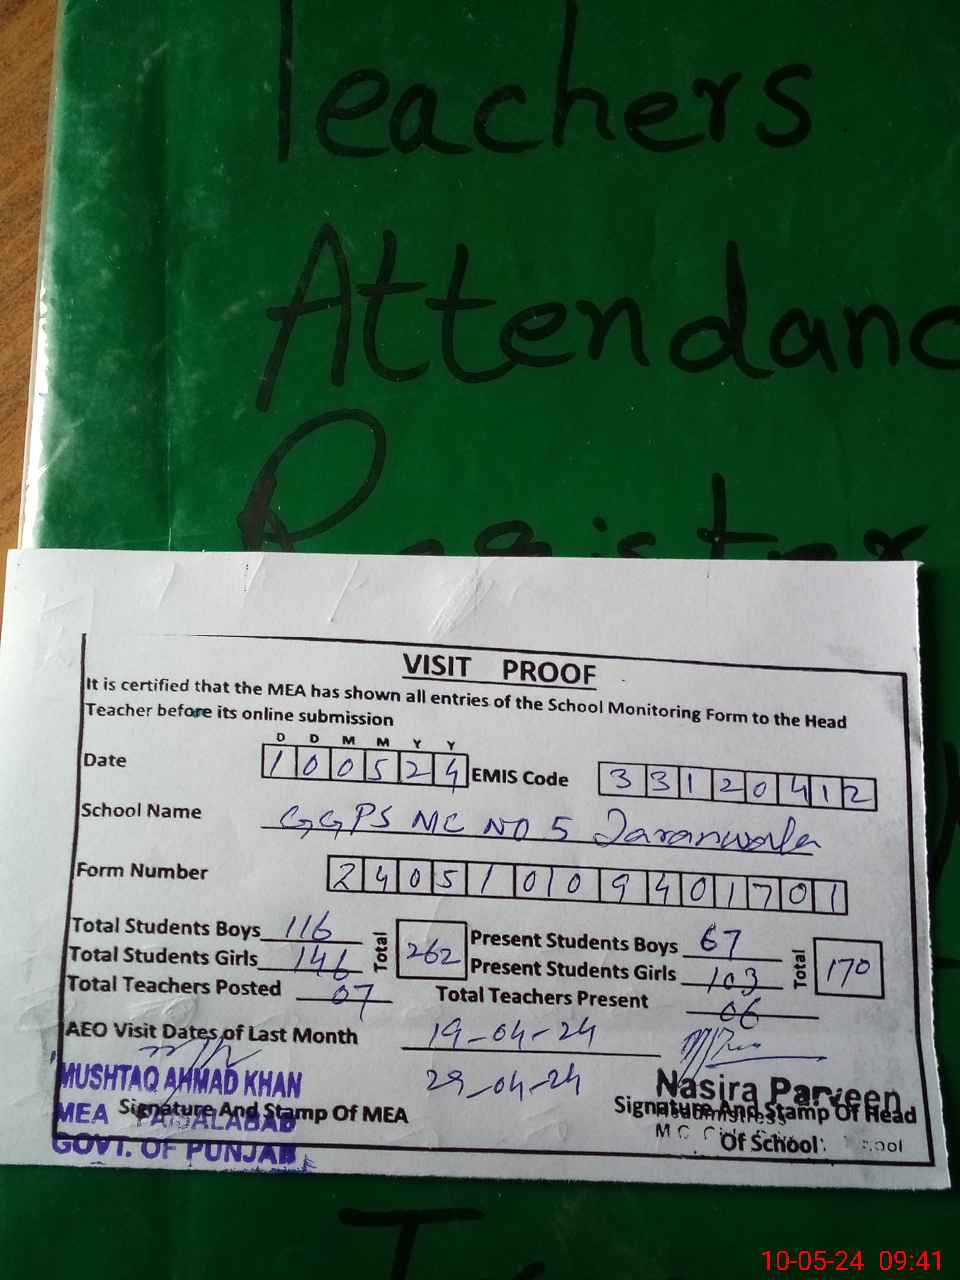 Teachers
Attendanc
Register
VISIT PROOF
It is certified that the MEA has shown all entries of the School Monitoring Form to the Head
Teacher before its online submission
D D M M Y Y
Date 1 0 0 5 2 4 EMIS Code 3 3 1 2 0 4 1 2
School Name GGPS MC NO 5 Jaranwala
Form Number 2 4 0 5 1 0 0 9 4 0 1 7 0 1
Total Students Boys 116 Total 262 Present Students Boys 67 Total 170
Total Students Girls 146 Present Students Girls 103
Total Teachers Posted 07 Total Teachers Present 06
AEO Visit Dates of Last Month 19-04-24
29-04-24
MUSHTAQ AHMAD KHAN
MEA FAISALABAD
GOVT. OF PUNJAB
Signature And Stamp Of MEA
Nasira Parveen
Headmistress
Signature And Stamp Of Head
Of School
M C
10-05-24 09:41